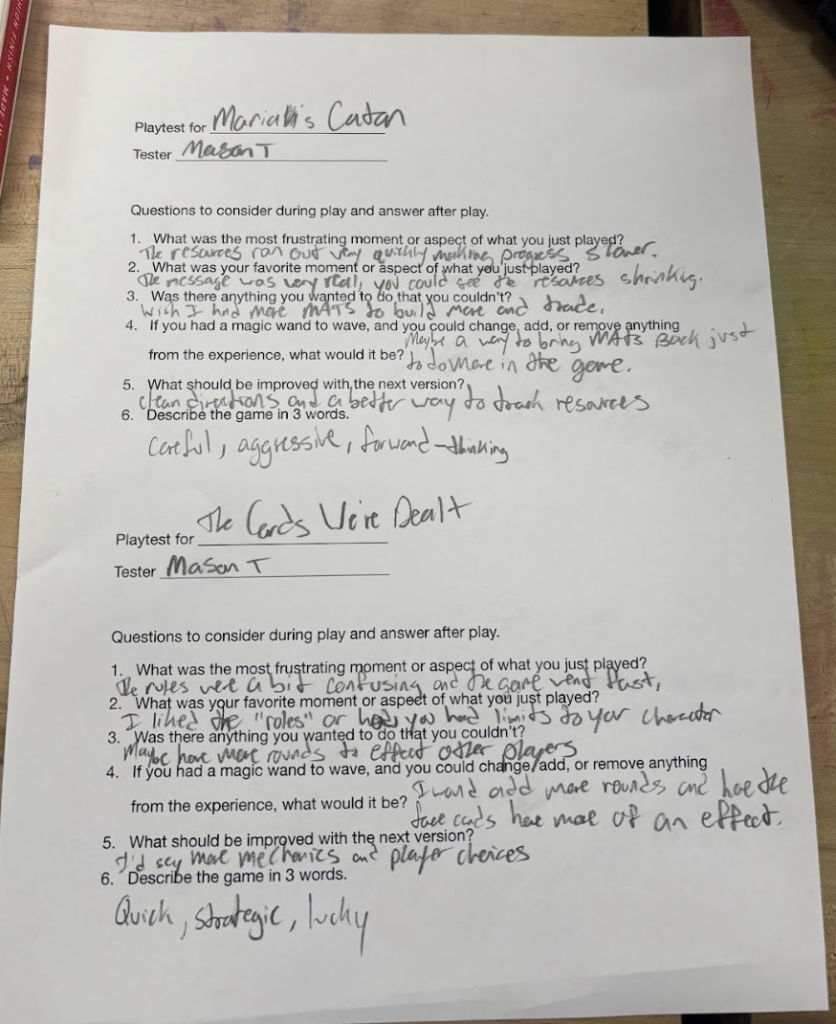 Playtest for Mariah's Catan
Tester Mason T
Questions to consider during play and answer after play.
1. What was the most frustrating moment or aspect of what you just played?
The resources ran out very quickly making progress slower.
2. What was your favorite moment or aspect of what you just played?
The message was very real, you could see the resources shrinking.
3. Was there anything you wanted to do that you couldn't?
Wish I had more MATS to build more and trade.
4. If you had a magic wand to wave, and you could change, add, or remove anything
from the experience, what would it be? Maybe a way to bring MATS Back just
to do more in the game.
5. What should be improved with the next version?
clean directions and a better way to track resources
6. Describe the game in 3 words.
Careful, aggressive, forward-thinking
Playtest for The Cards We're Dealt
Tester Mason T
Questions to consider during play and answer after play.
1. What was the most frustrating moment or aspect of what you just played?
The rules were a bit confusing and the game went fast,
2. What was your favorite moment or aspect of what you just played?
I liked the "roles" or how you had limits to your character
3. Was there anything you wanted to do that you couldn't?
Maybe have more rounds to effect other players
4. If you had a magic wand to wave, and you could change, add, or remove anything
from the experience, what would it be? I would add more rounds and have the
face cards have more of an effect.
5. What should be improved with the next version?
I'd say more mechanics and player choices
6. Describe the game in 3 words.
Quick, strategic, lucky